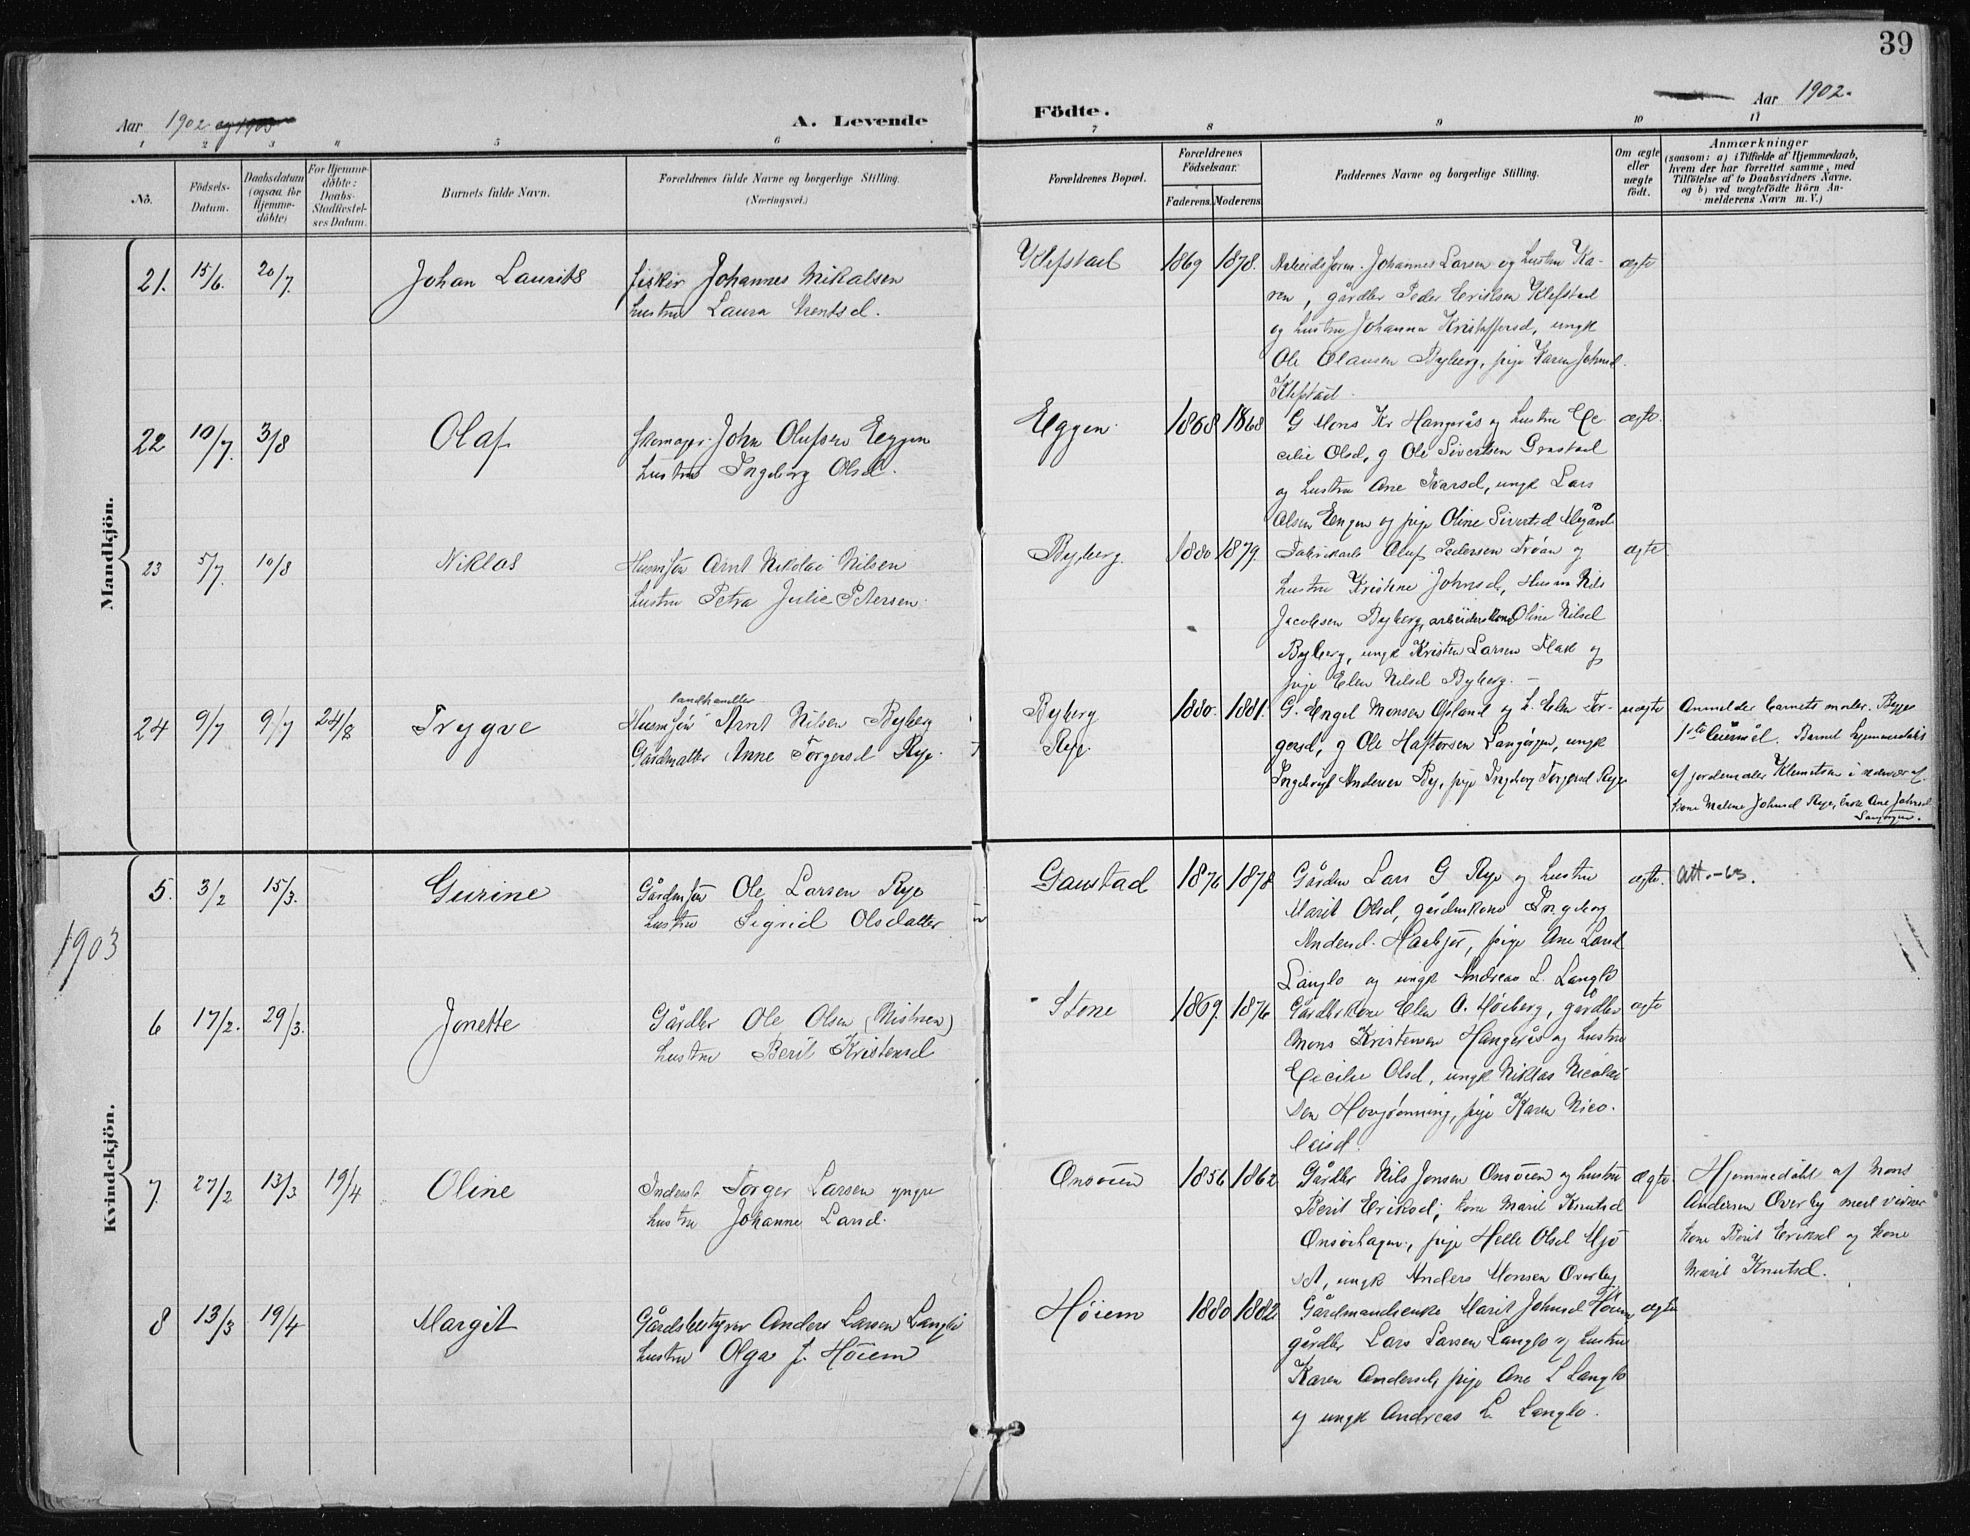 39
Aar 1902 og 1903
A. Levende
Födte.
Aar 1902.
1 2 3 4 5 6 7 8 9 10 11
No.
Födsels-Datum.
Daabsdatum (ogsaa for Hjemmedöbte)
For Hjemmedöbte: Daabs-Stadfæstelses Datum.
Barnets fulde Navn.
Forældrenes fulde Navne og borgerlige Stilling. (Næringsvei.)
Forældrenes Bopæl.
Forældrenes Födselsaar.
Faderens. Moderens.
Faddernes Navne og borgerlige Stilling.
Om ægte eller uægte födt.
Anmærkninger
(saasom: a) i Tilfælde af Hjemmedaab,
hvem der har forrettet samme, med
Tilföielse af to Daabsvidners Navne.
og b) ved uægtefödte Börn An-
melderens Navn m. V.)
Mandkjön.
21. 15/6. 20/7. Johan Laurits
fisker Johannes Mikalsen
hustru Laura
Klefstad 1869 1878.
Johannes Larsen og hustru Ka-
ren, gårdbr Peder Eriksen Klefstad
og hustru Johanna Kristoffersd, ungk
Ole Olausen Byberg, pige Karen Johnsd.
Klefstad.
ægte
22 10/7. 3/8 Olaf
skomager John Olufsen Eggen
hustru Ingeborg Olsd.
Eggen. 1868 1868
G Mons Kr Hangerås og hustru Ce
cilie Olsd, g Ole Sivertsen
og hustru Ane Ivarsd, ungk Lars
Olsen Engen og pige Oline Sivertsd
ægte.
23 5/7. 10/8 Niklas
Husm Arnt Nikolai Nilsen
hustru Petra Julie Petersen.
Byberg. 1880 1879.
Oluf Pedersen Tröan og
hustru Kristine Johnsd, Husm Nils
Jacobsen Byberg, arbeiderkone Oline Nilsd
Byberg, ungk Kristen Larsen Flak og
pige Elen Nilsd Byberg.
ægte
24 9/7 9/7 24/8 Trygve
landhandler
Husmsön Arnt Nilsen Byberg
Gårdmdatter Anne Torgersd Rye.
Byberg
Rye.
1880. 1881.
G. Engel Monsen Opland og h. Elen Tor-
gersd, g Ole Haftorsen Langörgen, ungk
Ingebrigt Andersen By, pige Ingeborg Torgersd Rye
uægte
Anmelder barnets moder. Begges
1ste leiermål. Barnet hjemmedøbt
af jordemoder Klemetsen i nærvær af
kone Malene Johnsd Rye, enke Ane Johnsd
Langörgen.
1903
Kvindekjön.
5. 3/2 15/3. Gurine
Gårdmsön Ole Larsen Rye
hustru Sigrid Olsdatter
Gaustad 1876 1878
Gårdm Lars G Rye og hustru
Marit Olsd, gårdmkone Ingeborg
Andersd. Haabjör, pige Ane Larsd
Langlo og ungk Andreas L. Langlo
ægte. Att.-63.
6 17/2. 29/3. Jonette
Gårdbr Ole Olsen
hustru Berit Kristensd
Stene 1869. 1876
Gårdbrkone Elen O. Höiberg, gårdbr
Mons Kristensen Hangerås og hustru
Cecilie Olsd, ungk Niklas Nicolai
sen, pige Karen Nico-
laisd.
ægte
7. 27/2 13/3 19/4 Oline
Inderst Torger Larsen yngre
hustru Johanne Larsd.
Onsöien 1856 1862
Gårdbr Nils Jensen Onsöien og hustru
Berit Eriksd, kone Marit Knutsd
Onsöihagen, pige Helle Olsd Mjö
set, ungk Anders Monsen Overby
Ægte.
Hjemmedöbt af Mons
Andersen Overby med vidner
kone Berit Eriksd og kone
Marit Knutsd.
8 13/3 19/4 Margit
Gårdsbestyrer Anders Larsen Langlo
hustru Olga J. Höiem
Höiem 1880 1882
Gårdmandsenke Marit Johnsd Höiem,
gårdbr Lars Larsen Langlo og hustru
Karen Andersd, pige Ane L Langlo
og ungk Andreas L. Langlo.
ægte